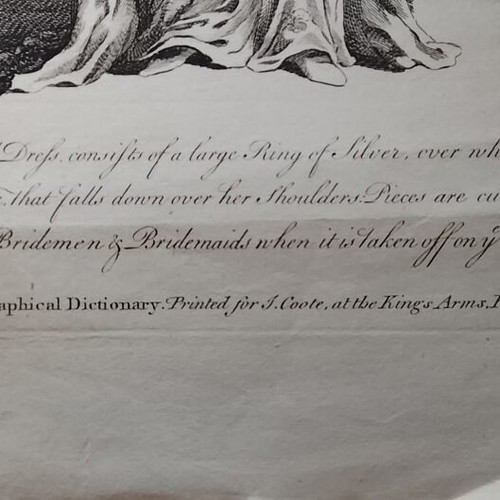 Dreſs, consiſts of a large Ring of Silver, over
That falls down over her Shoulders: Pieces are
Bridemen & Bridemaids when it is taken off on yᵉ
aphical Dictionary. Printed for J. Coote, at the King's Arms,